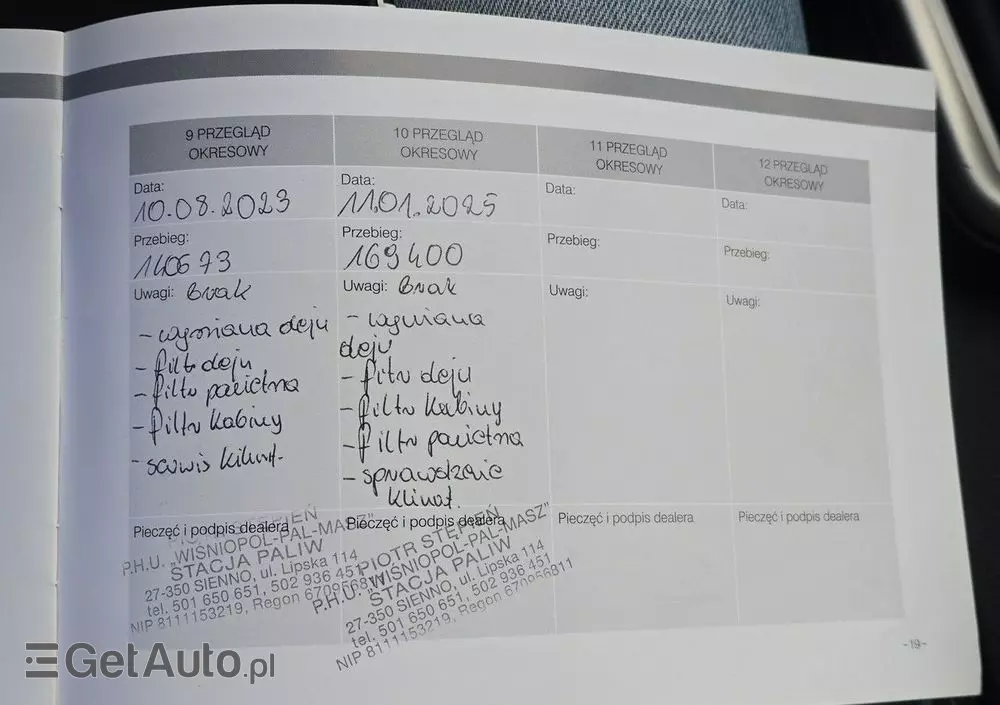 9 PRZEGLĄD
OKRESOWY
Data:
10.08.2023
Przebieg:
140673
Uwagi: Brak
- wymiana oleju
- filtr oleju
- filtr powietrza
- filtr kabiny
- serwis klimat.
Pieczęć i podpis dealera
P.H.U. „WIŚNIOPOL-PAL-MASZ”
STACJA PALIW
27-350 SIENNO, ul. Lipska 114
tel. 501 650 651, 502 936 451
NIP 8111153219, Regon
10 PRZEGLĄD
OKRESOWY
Data:
11.01.2025
Przebieg:
169400
Uwagi: Brak
- wymiana
oleju
- filtr oleju
- filtr kabiny
- filtr powietrza
- sprawdzenie
klimat.
Pieczęć i podpis dealera
PIOTR STĘPIEŃ
P.H.U. „WIŚNIOPOL-PAL-MASZ”
STACJA PALIW
27-350 SIENNO, ul. Lipska 114
tel. 501 650 651, 502 936 451
NIP 8111153219, Regon 670956811
11 PRZEGLĄD
OKRESOWY
Data:
Przebieg:
Uwagi:
Pieczęć i podpis dealera
12 PRZEGLĄD
OKRESOWY
Data:
Przebieg:
Uwagi:
Pieczęć i podpis dealera
-19-
GetAuto.pl